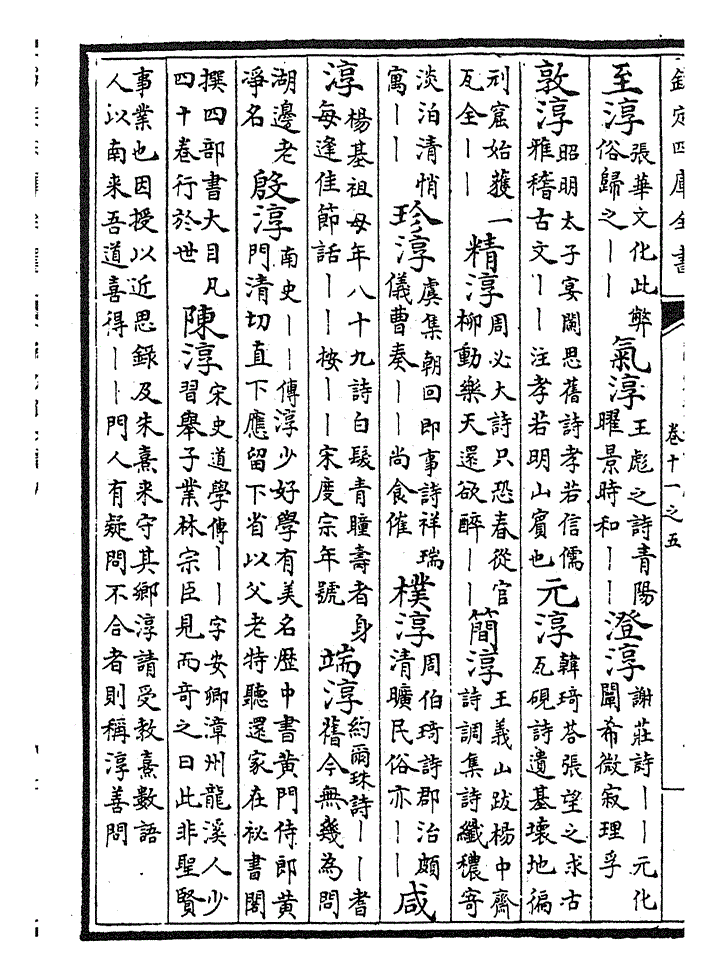 欽定四庫全書
卷十一之五
至淳張華文化此弊俗歸之——氣淳王彪之詩青陽曜景時和——澄淳謝莊詩——元化闡希微寂理孚
敦淳昭明太子宴闌思舊詩孝若信儒雅稽古文——注孝若明山賓也元淳韓琦荅張望之求古瓦硯詩遺基壞地徧
刓窟始獲一瓦全——精淳周必大詩只恐春從官柳動樂天還欲醉——簡淳王義山跋楊中齋詩調集詩纖穠寄
淡泊清悄寓——珍淳虞集朝回即事詩祥瑞儀曹奏——尚食催樸淳周伯琦詩郡治頗清曠民俗亦——咸
淳楊基祖母年八十九詩白髮青瞳壽者身每逢佳節話——按——宋度宗年號端淳約爾珠詩——耆舊今無幾為問
湖邊老淨名殷淳南史——傳淳少好學有美名歴中書黄門侍郎黄門清切直下應留下省以父老特聽還家在祕書閣
撰四部書大目凡四十卷行於世陳淳宋史道學傳——字安卿漳州龍溪人少習舉子業林宗臣見而奇之曰此非聖賢
事業也因授以近思錄及朱熹来守其鄉淳請受教熹數語人以南来吾道喜得——門人有疑問不合者則稱淳善問